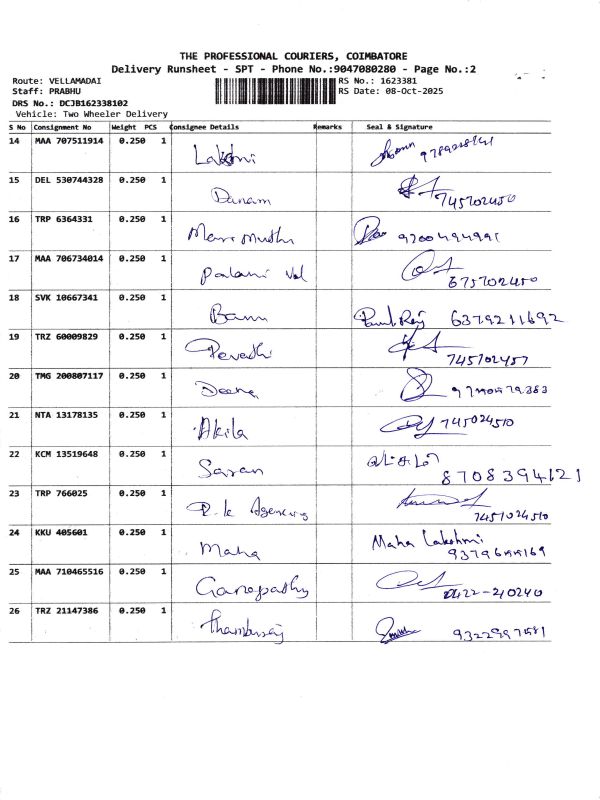 THE PROFESSIONAL COURIERS, COIMBATORE
Delivery Runsheet - SPT - Phone No.:9047080280 - Page No.:2
Route: VELLAMADAI RS No.: 1623381
Staff: PRABHU RS Date: 08-Oct-2025
DRS No.: DCJB162338102
Vehicle: Two Wheeler Delivery
S No Consignment No Weight PCS Consignee Details Remarks Seal & Signature
14 MAA 707511914 0.250 1 Lakshmi
15 DEL 530744328 0.250 1 Danam 745702450
16 TRP 6364331 0.250 1 Mari muthu 9200494991
17 MAA 706734014 0.250 1 Palani Vel 675702450
18 SVK 10667341 0.250 1 Banu 6379211692
19 TRZ 60009829 0.250 1 Revathi 745702457
20 TMG 200807117 0.250 1 Deena
21 NTA 13178135 0.250 1 Akila 745024510
22 KCM 13519648 0.250 1 Saran 8708394121
23 TRP 766025 0.250 1 R.k Agencies 7451024510
24 KKU 405601 0.250 1 Maha Maha Lakshmi
25 MAA 710465516 0.250 1 Ganapathy 0422-210240
26 TRZ 21147386 0.250 1 Thamburaj